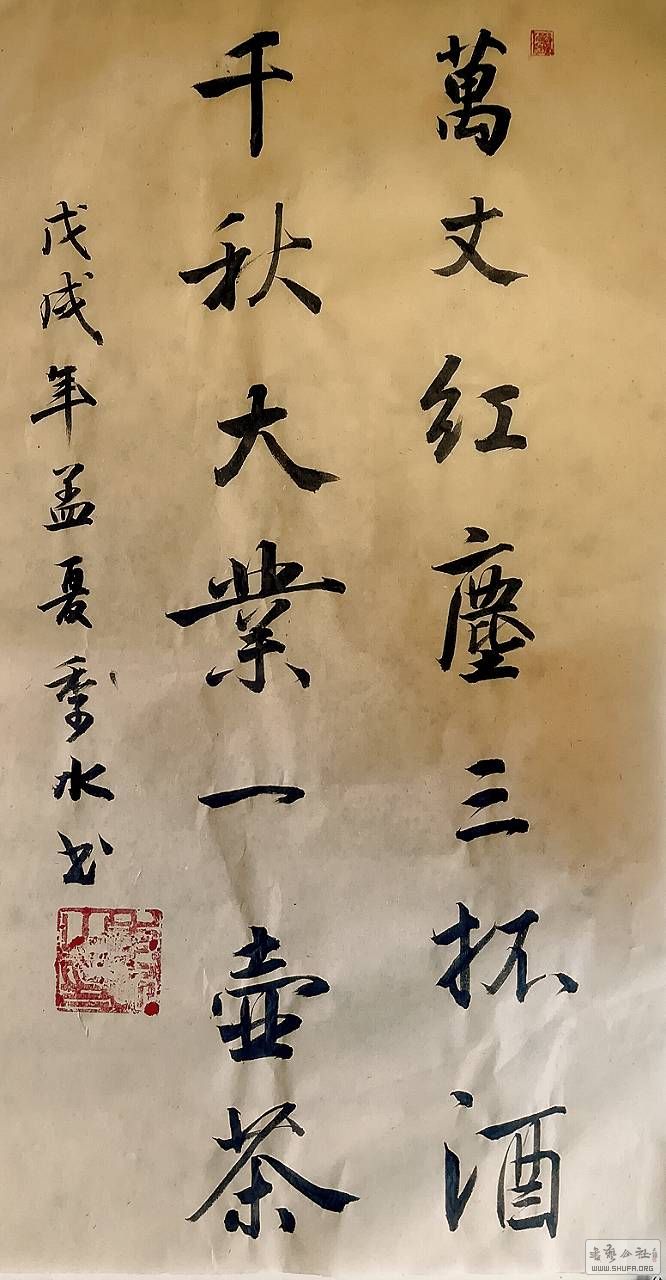 萬丈紅塵三杯酒
千秋大業一壺茶
戊戌年孟夏季水书
书艺公社
WWW.SHUFA.ORG